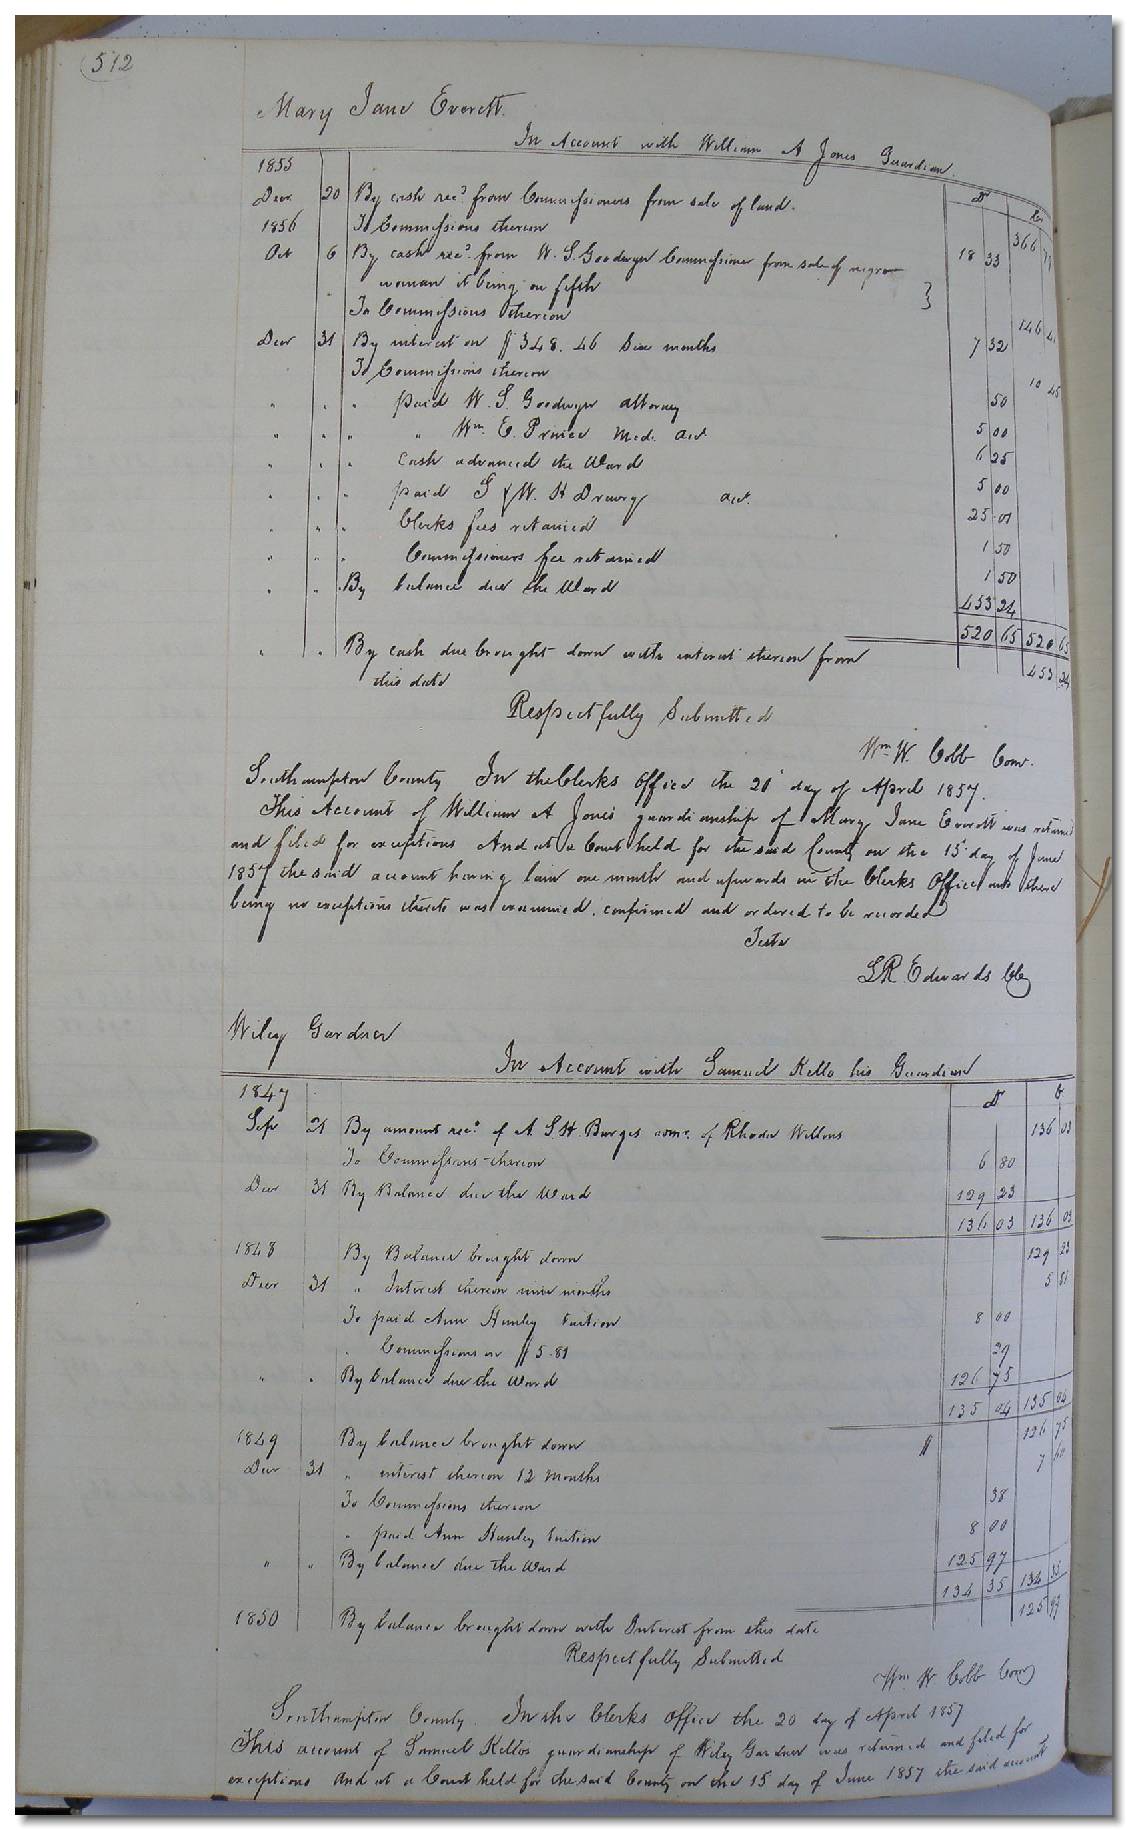 512
Mary Jane Everett.
In Account with William A Jones Guardian.
Dr Cr
1855
Decr 20 By cash recd from Commissioners from sale of land. 366
1856 To Commissions thereon 18 33
Oct 6 By cash recd from W. S. Goodwyn Commissioner from sale of negro
woman it being on fifth } 146
To Commissions thereon 7 32
Decr 31 By interest on $348.46 Six months 10 45
To Commissions thereon 50
" " " paid W. S. Goodwyn attorney 5 00
" " " " Wm. E. Prince Med. act 6 25
" " " Cash advanced the Ward 5 00
" " " paid G & W. H Drewry act. 25 01
" " " Clerks fees retained 1 50
" " " Commissioners fee retained 1 50
" " By balance due the Ward 453 24
520 65 520 65
" " By cash due brought down with interest thereon from 453 24
this date
Respectfully Submitted
Wm W. Cobb Comr.
Southampton County In the Clerks Office the 20 day of April 1857.
This Account of William A Jones guardianship of Mary Jane Everett was returned
and filed for exceptions And at a Court held for the said County on the 15 day of June
1857 the said account having lain one month and upwards in the Clerks Office and there
being no exceptions thereto was examined, confirmed and ordered to be recorded
Teste
L R. Edwards Clk
Wiley Gardner
In Account with Samuel Kello his Guardian
Dr Cr
1847
Sep 21 By amount recd of A. S. H Burges comr. of Rhoda Willons 136 03
To Commissions thereon 6 80
Decr 31 By Balance due the Ward 129 23
136 03 136 03
1848 By Balance brought down 129 23
Decr 31 " Interest thereon nine months 5 81
To paid Ann Hunley tuition 8 00
" Commissions on $5.81 29
" " By balance due the Ward 126 75
135 04 135 04
1849 By balance brought down $ 126 75
Decr 31 " interest thereon 12 months 7 60
To Commissions thereon 38
" paid Ann Hunley tuition 8 00
" " By balance due the Ward 125 97
134 35 134 35
1850 By balance brought down with Interest from this date 125 97
Respectfully Submitted
Wm W Cobb Comr
Southampton County. In the Clerks Office the 20 day of April 1857
This account of Samuel Kellos guardianship of Wiley Gardner was returned and filed for
exceptions And at a Court held for the said County on the 15 day of June 1857 the said account